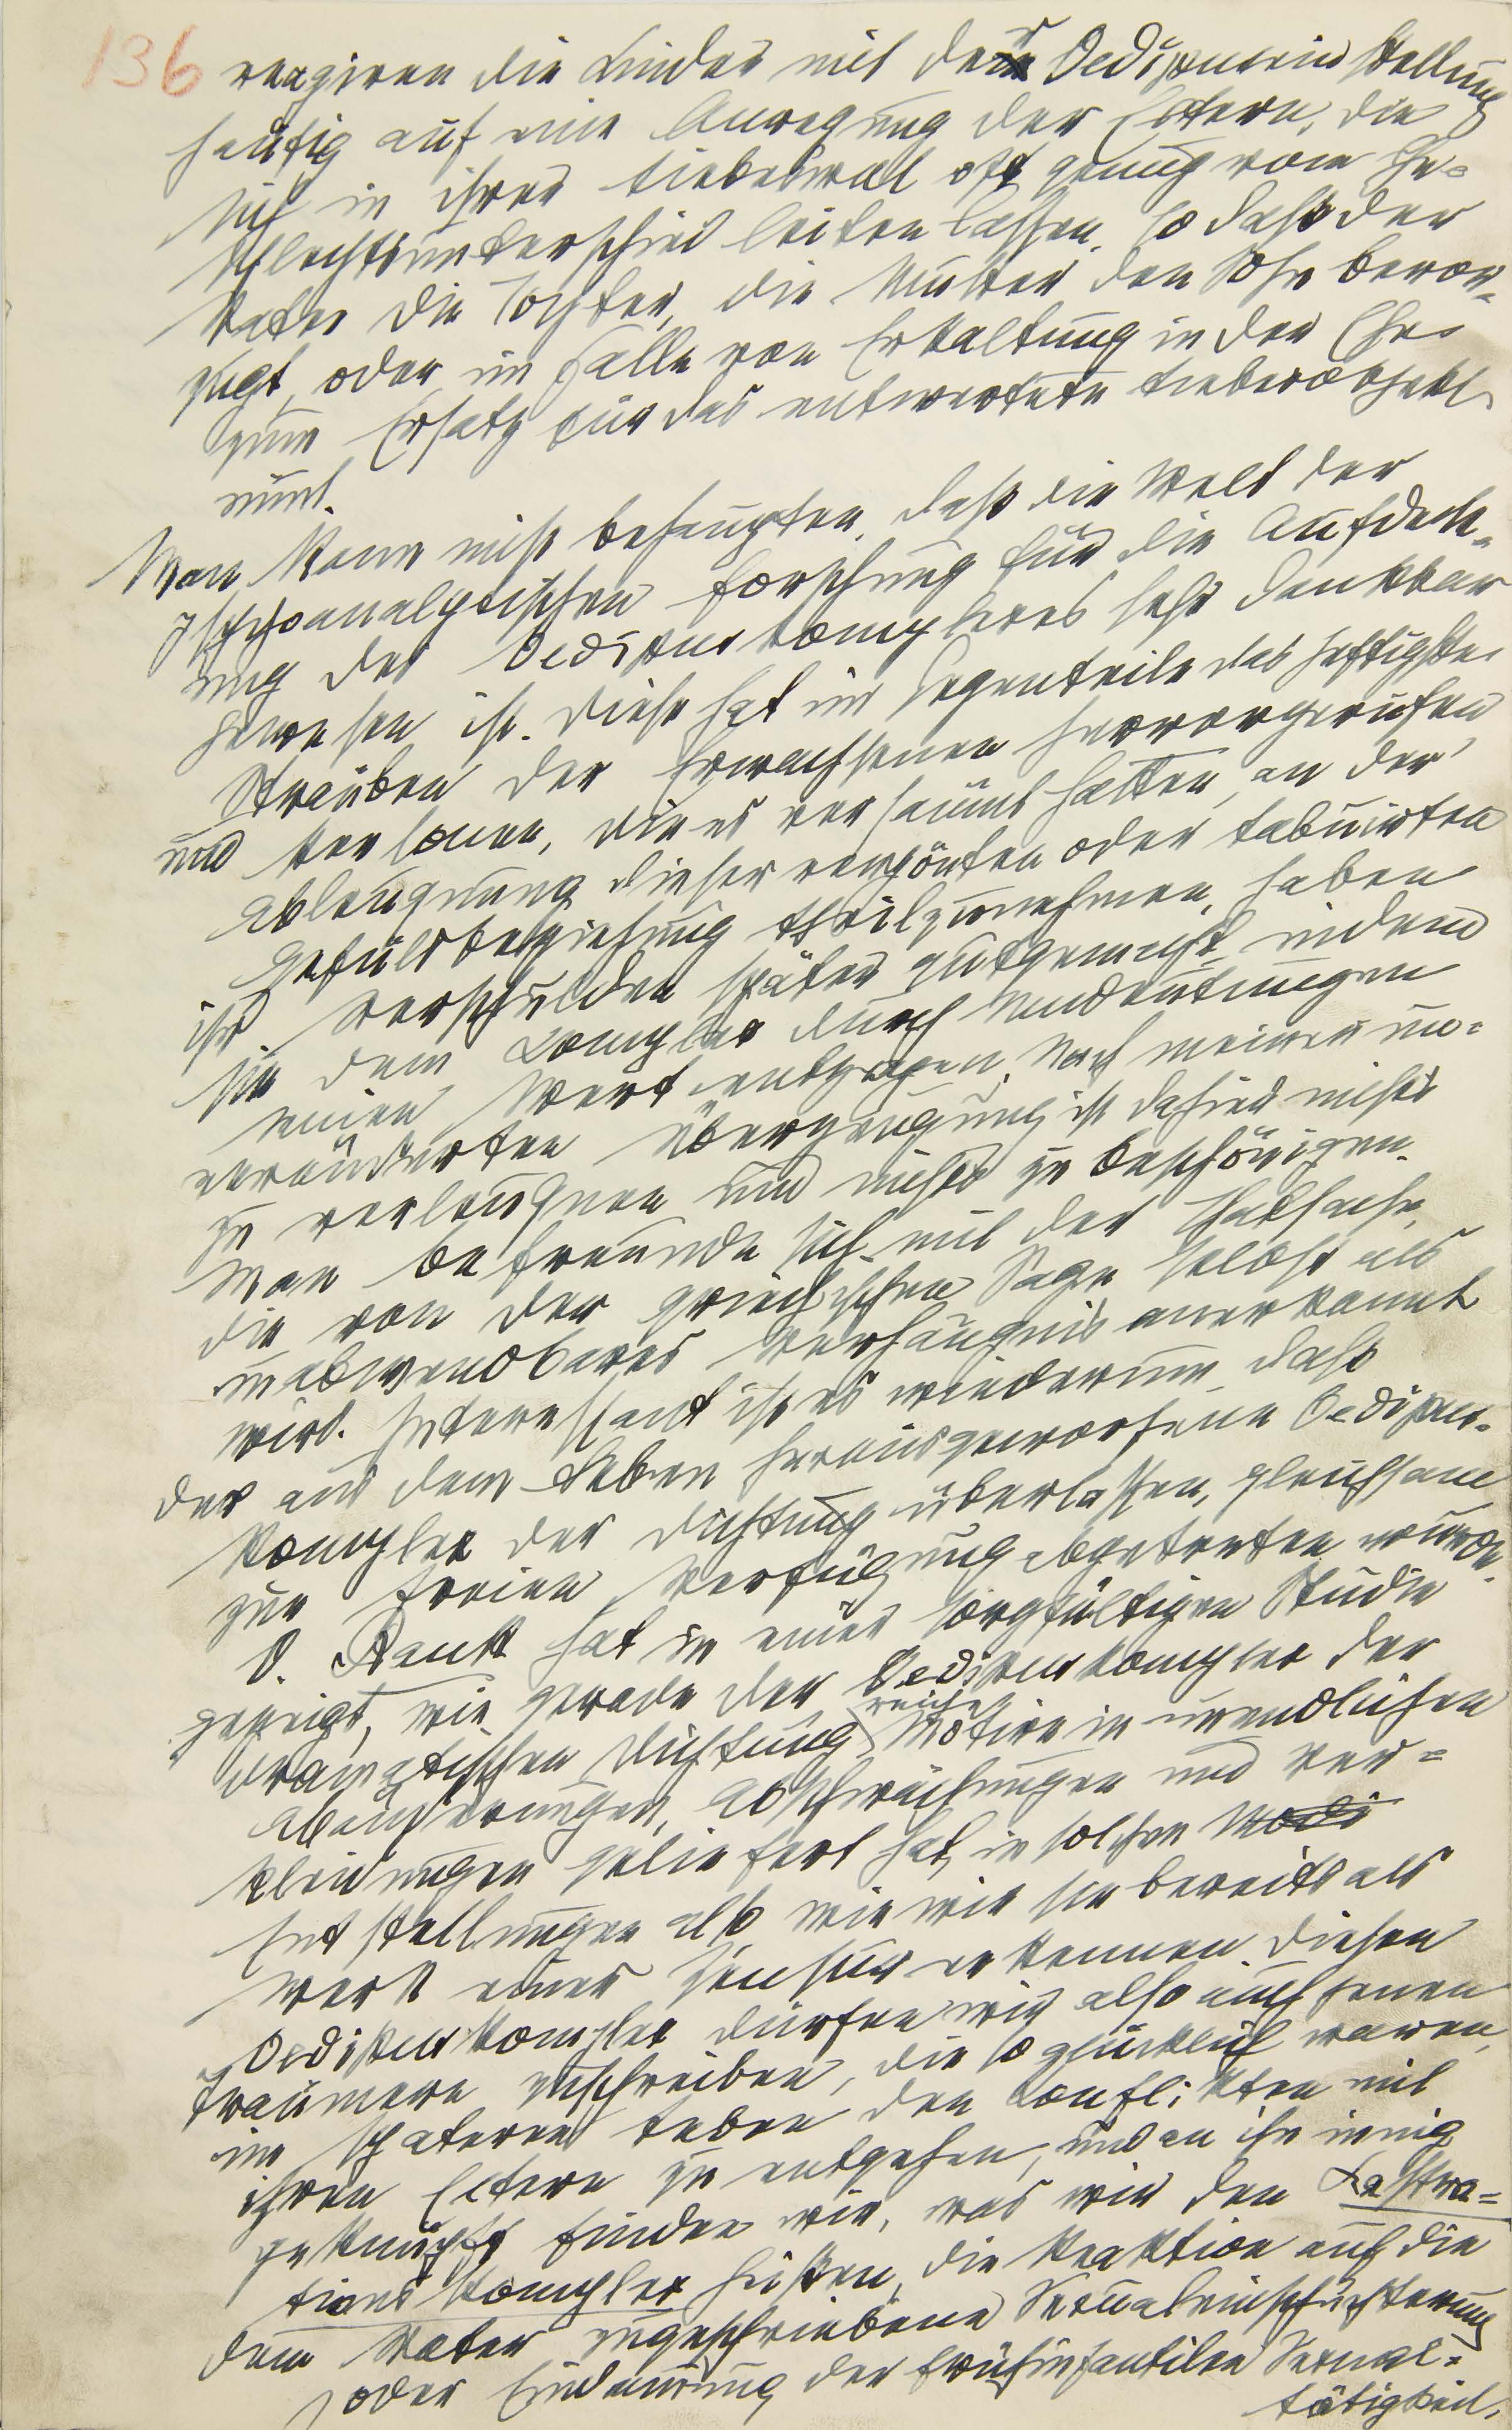 136
reagiren die Kinder mit der Oedipuseinstellung
häufig auf eine Anregung der Eltern, die
sich in ihrer Liebeswal oft genug vom Ge-
schlechtsunterschied leiten lassen, so dass der
Vater die Tochter, die Mutter den Sohn bevor-
zugt, oder im Falle von Erkaltung in der Ehe
zum Ersatz für das entwertete Liebesobjekt
nimt.
Man kann nicht behaupten, dass die Welt der
psychoanalytischen Forschung für die Aufdeck-
ung des Oedipuskomplexes sehr dankbar
gewesen ist. Diese hat im Gegenteile das heftigste
Sträuben der Erwachsenen hervorgerufen
und Personen, die es versäumt hatten, an der
Ableugnung dieser verpönten oder tabuirten
Gefülsbeziehung theilzunehmen, haben
ihr Verschulden später gutgemacht, indem
sie dem Complex durch Umdeutungen
seinen Wert entzogen. Nach meiner un-
veränderten Überzeugung ist da hier nichts
zu verleugnen und nichts zu beschönigen.
Man befreunde sich mit der Thatsache,
die von der griechischen Sage selbst als
unabwendbares Verhängnis anerkannt
wird. Interessant ist es wiederum, dass
der aus dem Leben herausgeworfene Oedipus-
komplex der Dichtung überlassen, gleichsam
zur freien Verfügung abgetreten wurde.
O. Rank hat in einer sorgfältigen Studie
gezeigt, wie gerade der Oedipuskomplex der
dramatischen Dichtung reiche Motive in unendlichen
Abänderungen, Abschwächungen und Ver-
kleidungen geliefert hat, in solchen Modi
Entstellungen also, wie wir sie bereits als
Werk einer Zensur erkennen. Diesen
Oedipuskomplex dürfen wir also auch jenen
Träumern zuschreiben, die so glücklich waren,
im späteren Leben den Konflikten mit
ihren Eltern zu entgehen, und an ihn innig
geknüpft finden wir, was wir den Kastra-
tionskomplex heißen, die Reaktion auf die
dem Vater zugeschriebene Sexualeinschüchterung
oder Eindämmung der frühinfantilen Sexual-
tätigkeit.